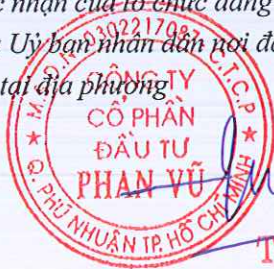 c nhận của tổ chức đảng
Uỷ ban nhân dân nơi đ
tại địa phương
M.S.D.N: 0302217097 C.T.C.P
CÔNG TY
CỔ PHẦN
ĐẦU TƯ
PHAN VŨ
Q. PHÚ NHUẬN TP. HỒ CHÍ MINH
T